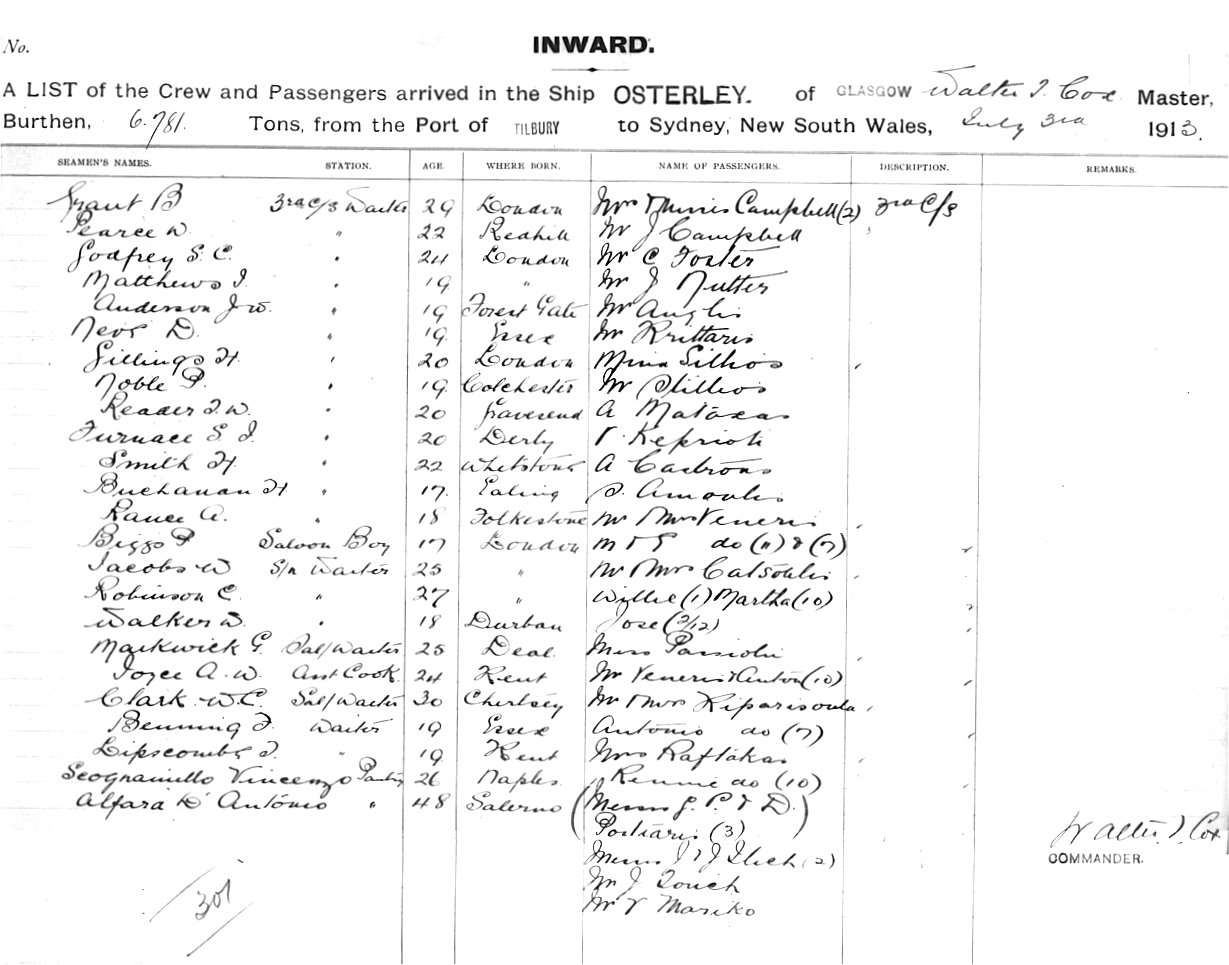 No.
INWARD.
A LIST of the Crew and Passengers arrived in the Ship OSTERLEY. of GLASGOW Walter J. Cox Master,
Burthen, 6.781. Tons, from the Port of TILBURY to Sydney, New South Wales, July 3rd 1913.
SEAMEN'S NAMES. STATION. AGE. WHERE BORN. NAME OF PASSENGERS. DESCRIPTION. REMARKS.
Grant B 3rd C/s Waiter 29 London Mrs & Misses Campbell (2) 3rd C/s
Pearce W. " 22 Redhill Mr J Campbell
Godfrey S. C. " 24 London Mr C Foster
Matthews J. " 19 " Mr J Nutter
Anderson J W. " 19 Forest Gate Mr Anglis
D. " 19 Essex Mr Krittaris
Gillings H. " 20 London
Noble P. " 19 Colchester Mr
Reader F. W. " 20 Gravesend A Mataxas
Furnace S. J. " 20 Derby
Smith H. " 22 Whetstone A
Buchanan H " 17. Ealing
Rance A. " 18 Folkestone Mr Mrs Veneris
Biggs P Saloon Boy 17 London M & G do (11) & (7)
Jacobs W S/n Waiter 25 " Mr Mrs Catsoulis
Robinson C. " 27 " Willie (1) Martha (10)
Walker W. " 18 Durban Jose
Markwick G. Sal/Waiter 25 Deal Miss
Joyce A. W. Asst Cook 24 Kent Mr Veneris (10)
Clark W. C. Sal/Waiter 30 Chertsey Mr & Mrs Kiparisoula
Benning F. Waiter 19 Essex Antonio do (7)
Lipscombe F. " 19 Kent Mrs Raftakas
Scognamillo Vincenzo Pantry 26 Naples. do (10)
Alfara D' Antonio " 48 Salerno (Messrs G. P. & D.)
(3)
Messrs J & J (2)
Mr J
Mr V Mariko
Walter J. Cox
COMMANDER.
301